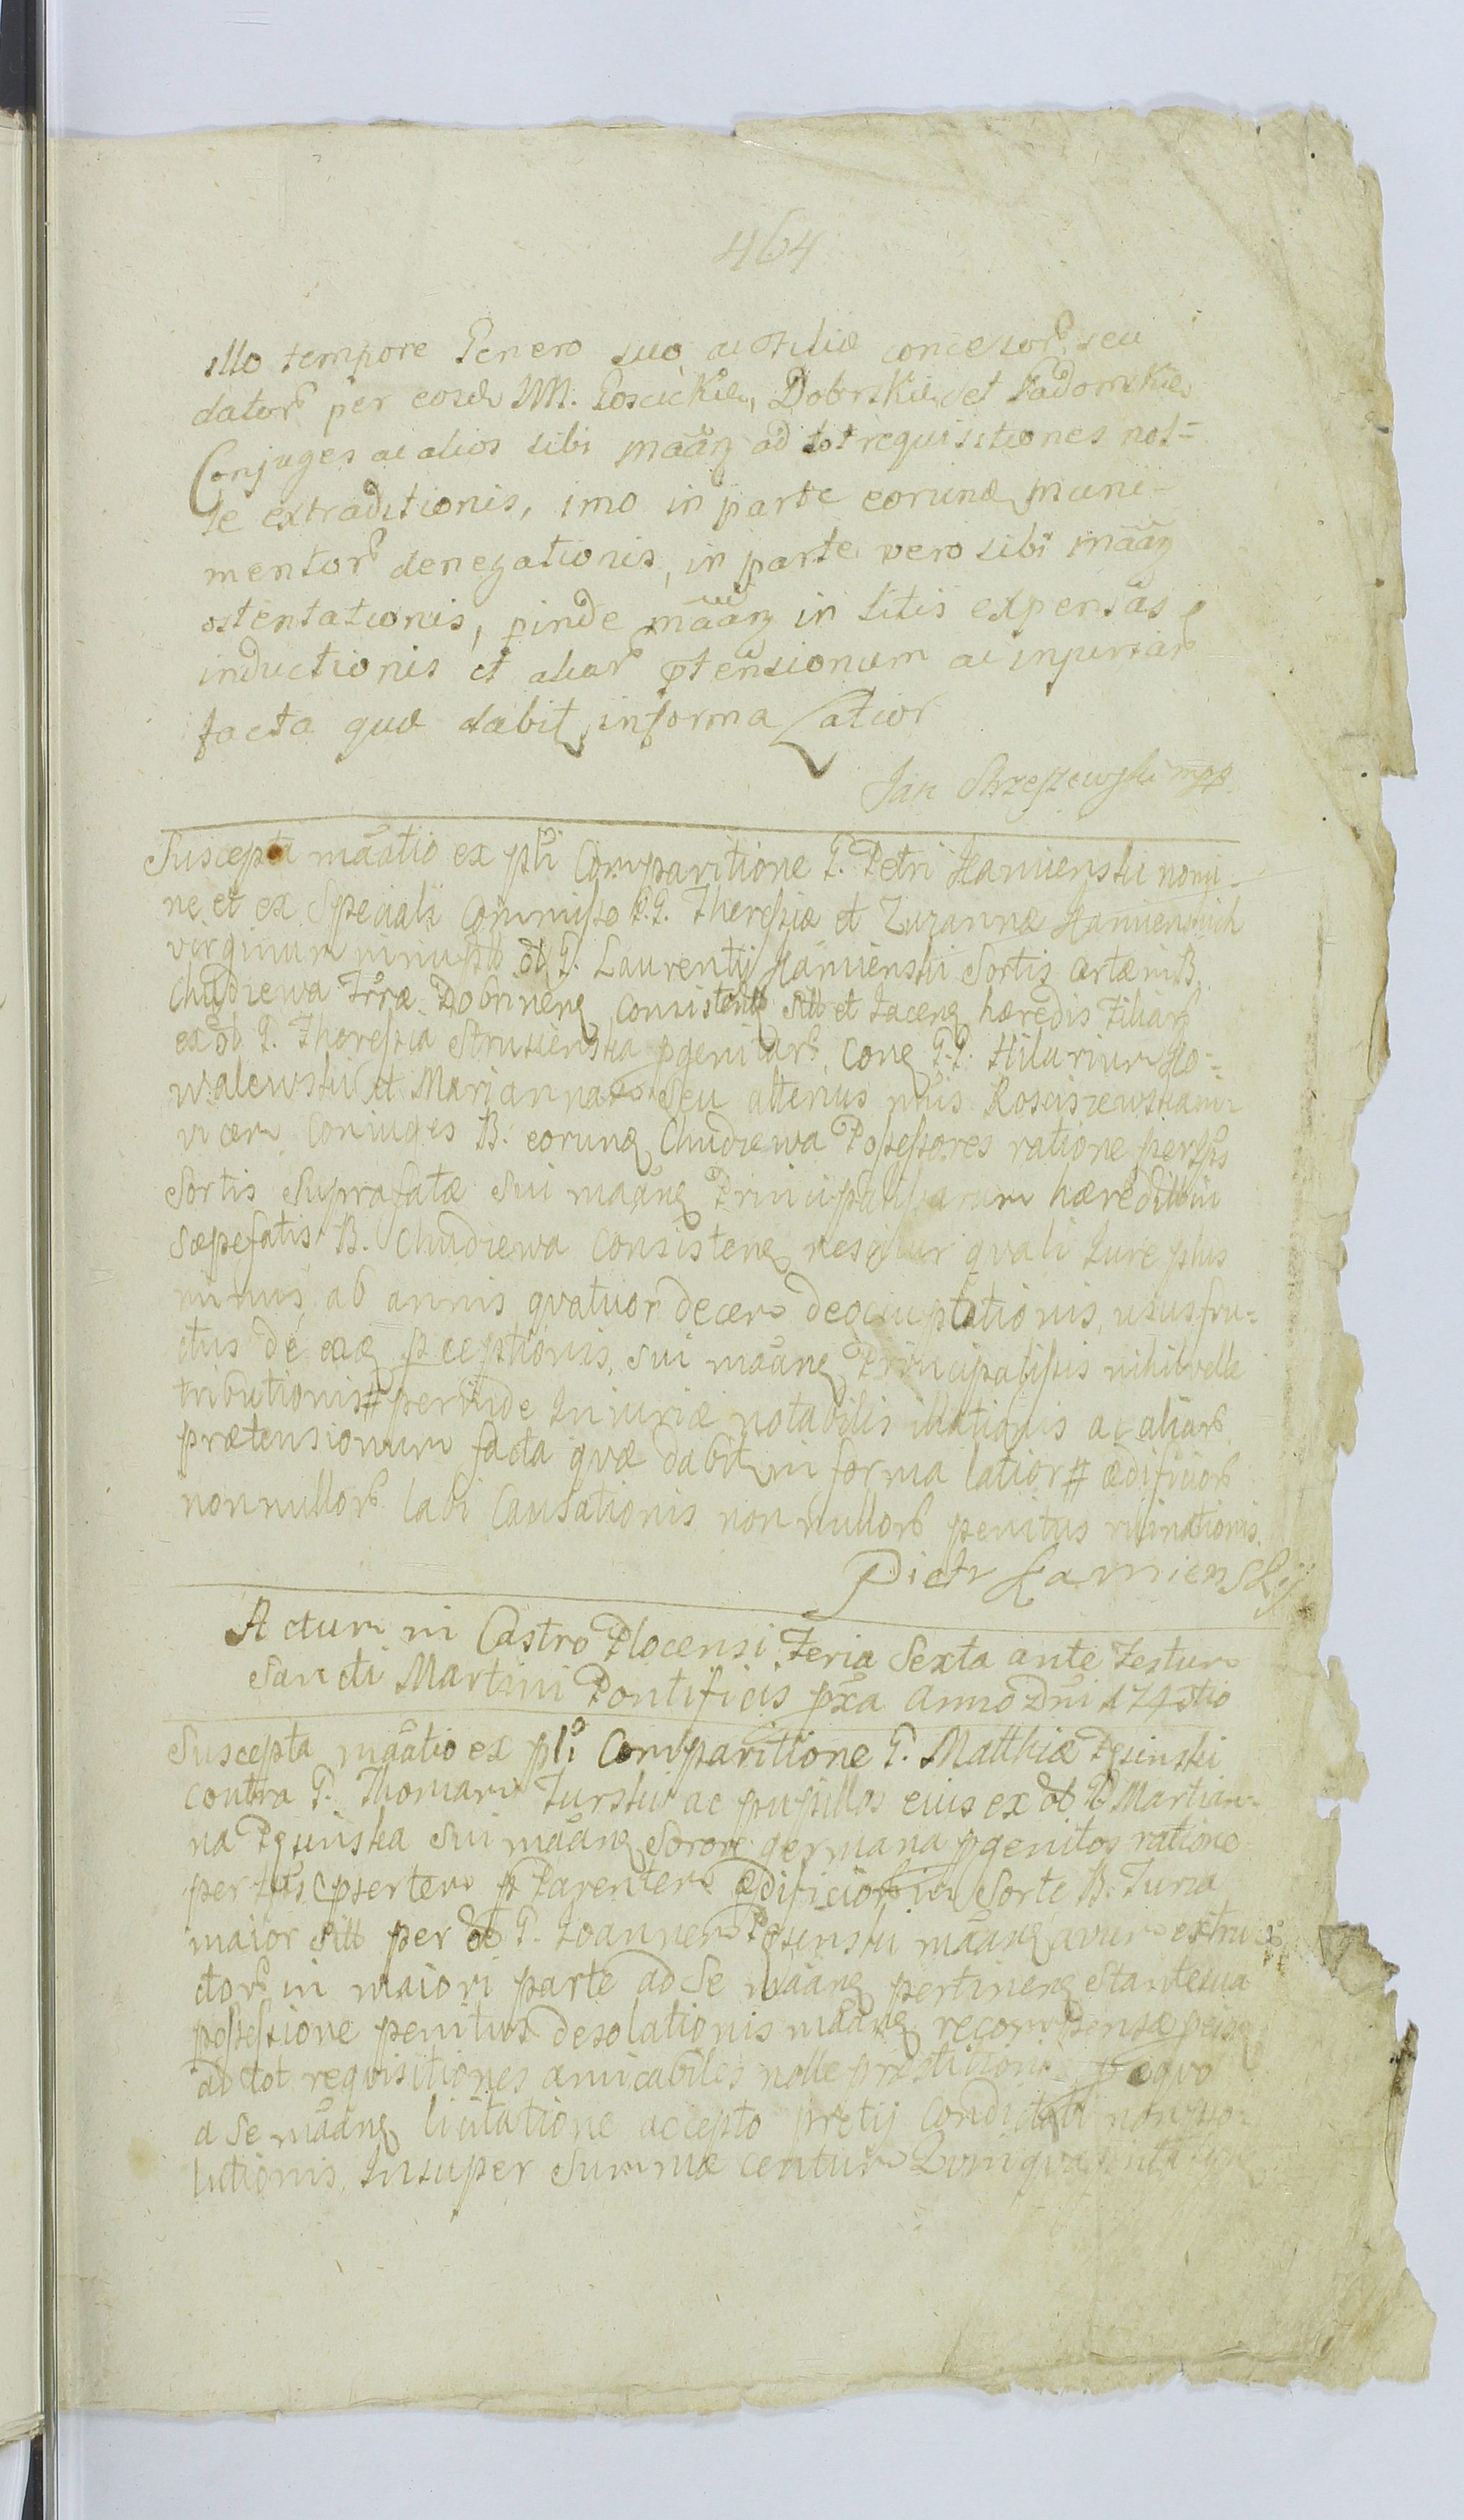 464
illo tempore Genero suo ac Filiæ concessor seu
dator per eosd MM. Gościckie, Dobrskie et Sadomskie
Conjuges ac alios sibi mããn ad tot requisitiones nol=
le extraditionis, imo in parte eorund muni-
mentor denegationis, in parte vero sibi mããn
ostentationis, pinde mããn in litis expensas
inductionis et aliar ptensionum ac injuriar
facta quæ dabit, in forma Latior
Jan Strzeszewski mpp
Suscepta mãatio ex pli Comparitione G. Petri Kamienski nomi-
ne et ex Speciali Commisso G.G. Theresiæ et Zuzannæ Kamienskich
virginum ol G. Laurentij Kamienski Sortis certæ in B.
Chudzewa Trræ Dobrinen Consisten Sitt et Jacen hæredis Filiar
ex ol G. Theresia Strusienska pgenitar, Con G.G. Hilarium Ko=
walewski et Mariannam Seu alterius nnis Rosciszewskam
vicem Coniuges B. eorund Chudzewa Possessores ratione
Sortis Suprafatæ Sui mããn Principalium hæredit in
Sæpefatis B. Chudzewa Consisten nescitur quali Jure plus
minus ab annis quatuor decem deoccupationis, ususfru=
ctus de ead pceptionis, Sui mããn Principalissis nihil velle
tributionis # perinde Injuriæ notabilis illationis ac aliar
prætensionum facta quæ dabit in forma latior # ædificior
nonnullor labi Causationis nonnullor penitus ruinationis.
Piotr Kamienskij
Actum in Castro Plocensi Feria Sexta ante Festum
Sancti Martini Pontificis pxa Anno Dni 174
Suscepta mãatio ex pli Comparitione G. Matthiæ
contra G. Thomam Turski ac pupillos eius ex ol G Marian-
na Sui mããn Sorore germana pgenitos ratione
per p Parentem ædificior in Sorte B. Turza
maior Sitt per ol G. Joannem mããn avum extru
ctor in maiori parte ad Se mããn pertinen Stante sua
possessione penitus desolationis mããn recompensæ
ad tot requisitiones amicabiles nolle præstitionis, p æquo
a Se mããn licitatione accepto pretij Condictati non so-
lutionis, Insuper Summæ centum